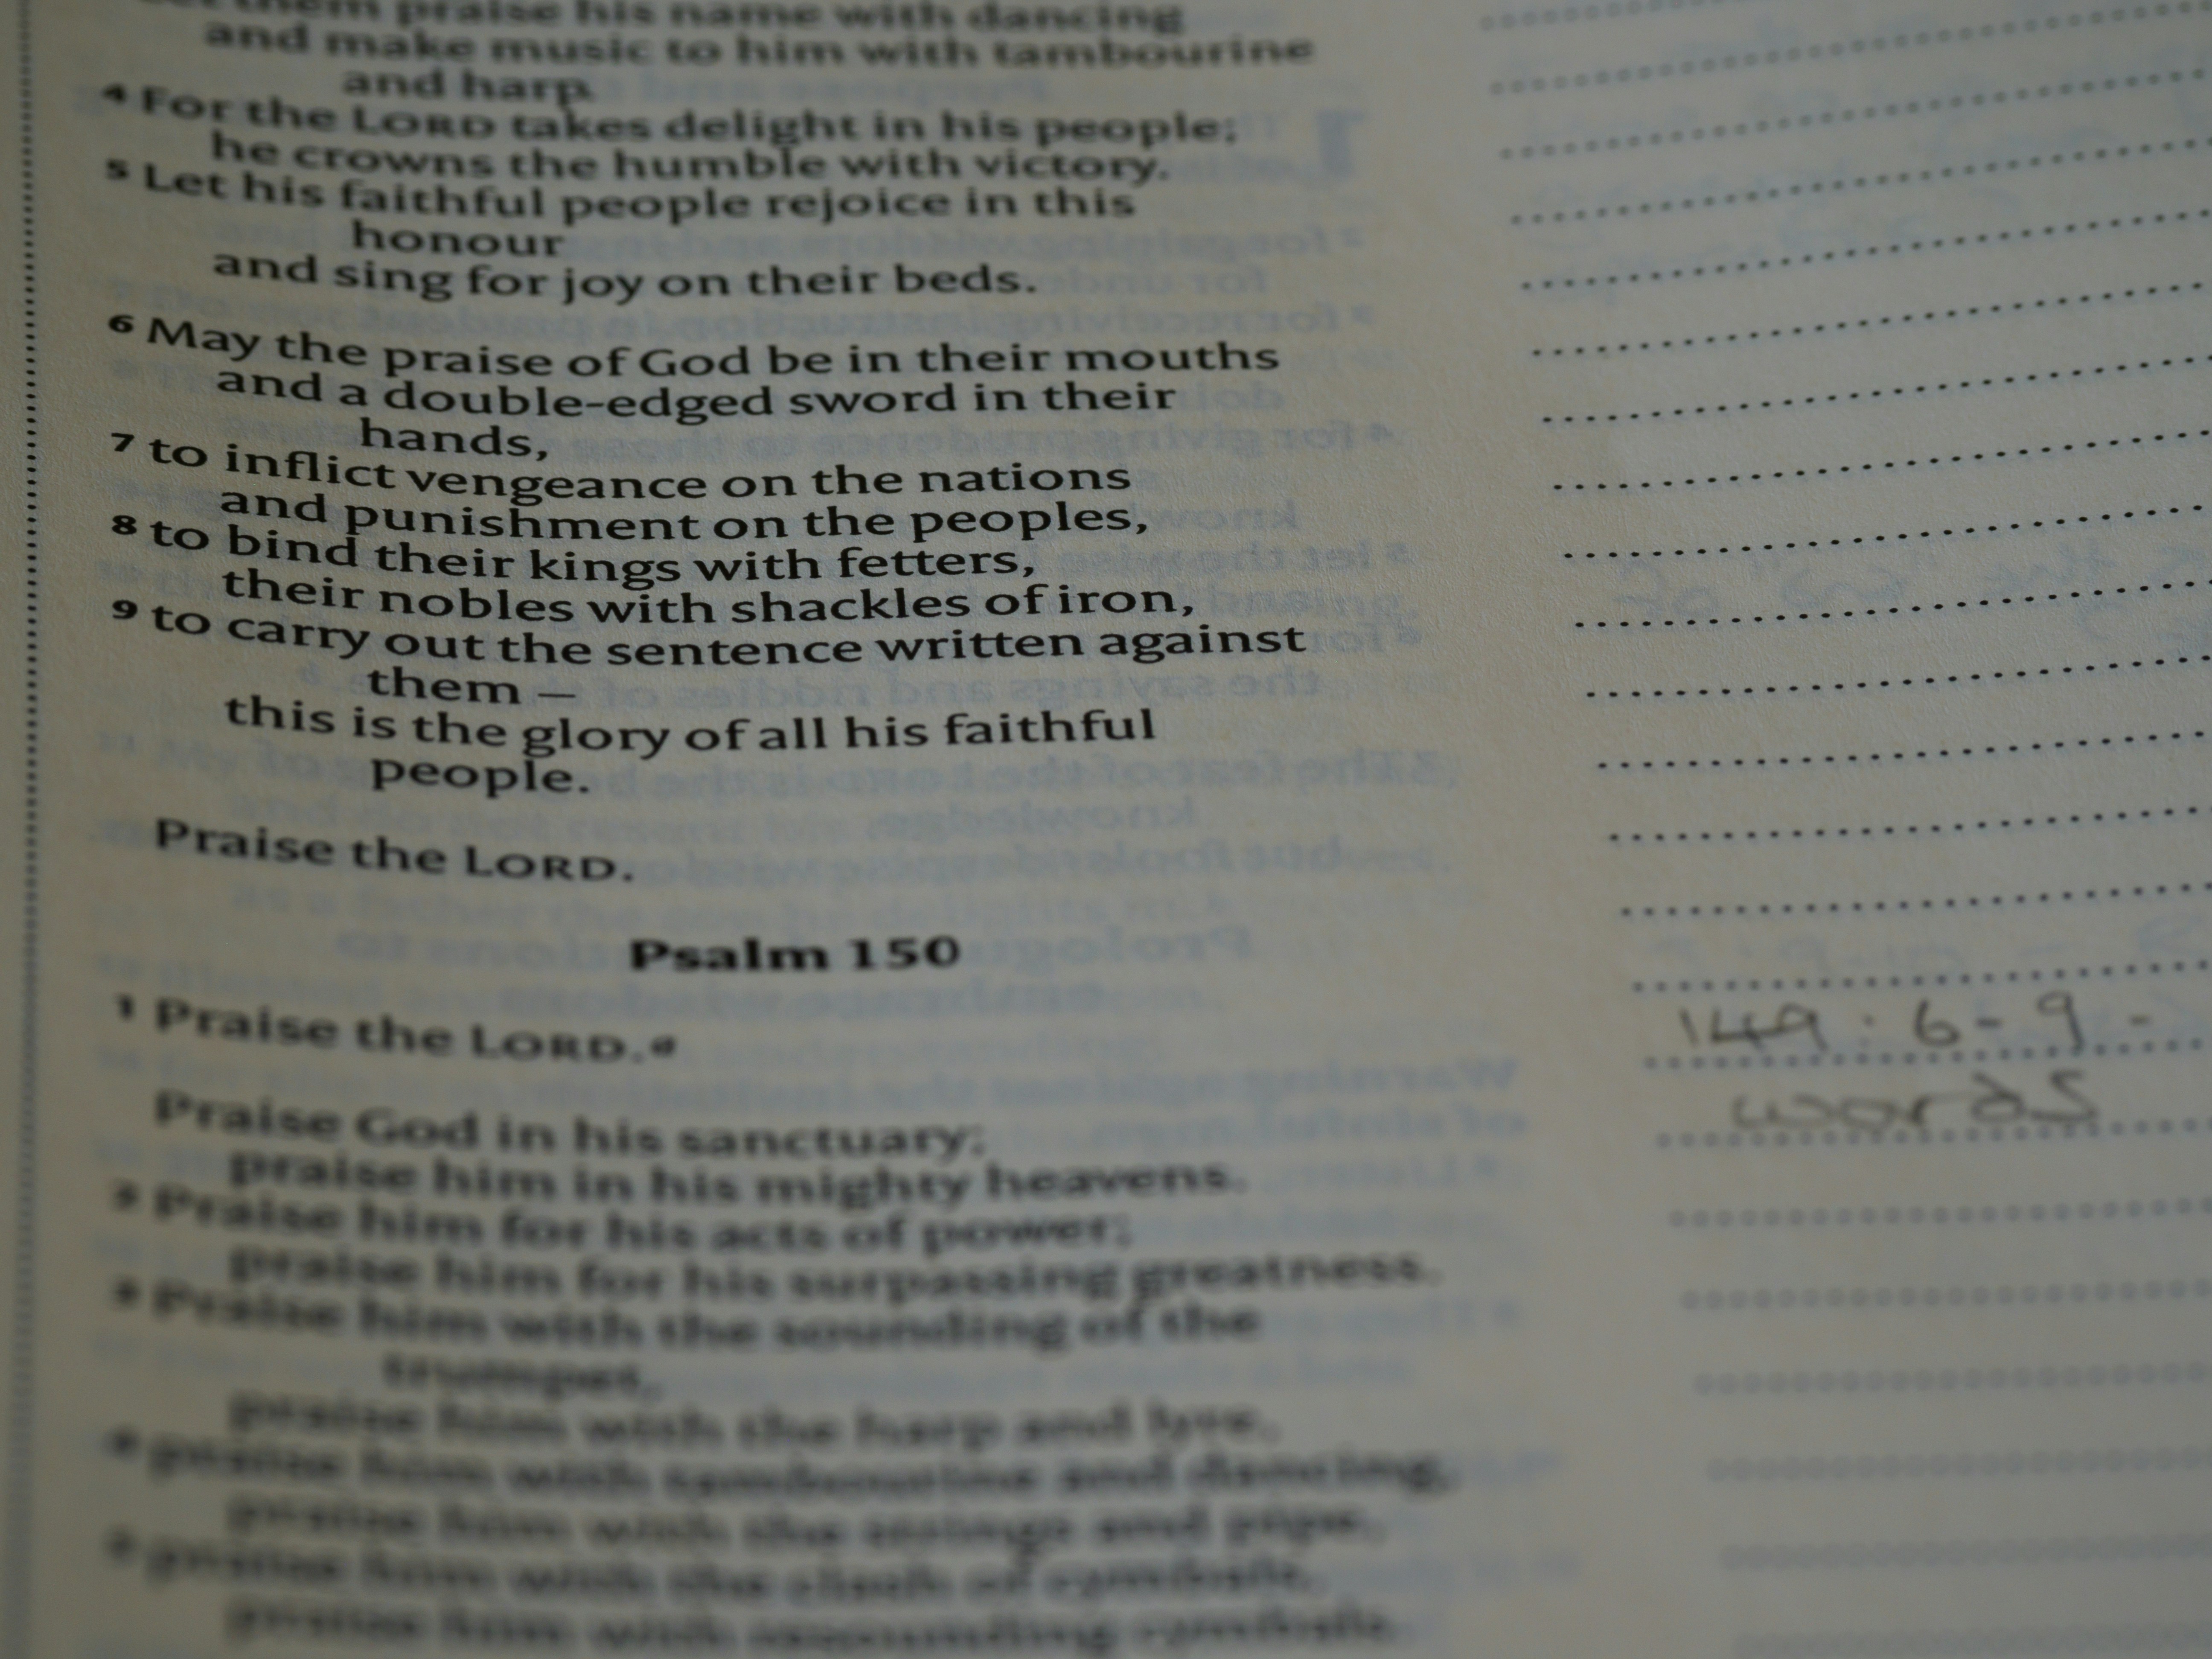 them praise his name with dancing
and make music to him with tambourine
and harp.
4 For the LORD takes delight in his people;
he crowns the humble with victory.
5 Let his faithful people rejoice in this
honour
and sing for joy on their beds.
6 May the praise of God be in their mouths
and a double-edged sword in their
hands,
7 to inflict vengeance on the nations
and punishment on the peoples,
8 to bind their kings with fetters,
their nobles with shackles of iron,
9 to carry out the sentence written against
them —
this is the glory of all his faithful
people.
Praise the LORD.
Psalm 150
1 Praise the LORD.a
Praise God in his sanctuary;
praise him in his mighty heavens.
2 Praise him for his acts of power;
praise him for his surpassing greatness.
3 Praise him with the sounding of the
trumpet,
praise him with the harp and lyre,
4 praise him with tambourine and dancing,
praise him with the strings and pipe,
5 praise him with the clash of cymbals,
praise him with resounding cymbals.
149:6-9-
words